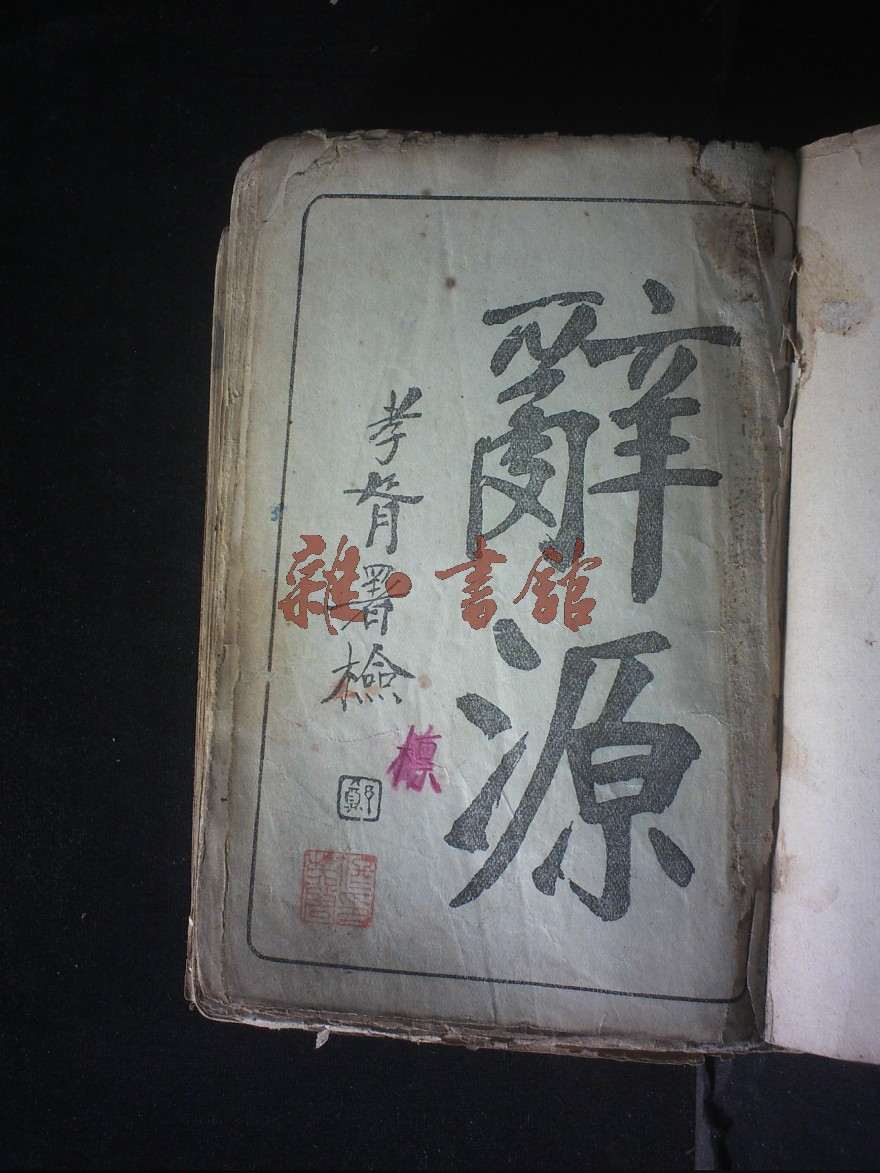 辭源
孝胥署檢
鄭
標
雜·書館